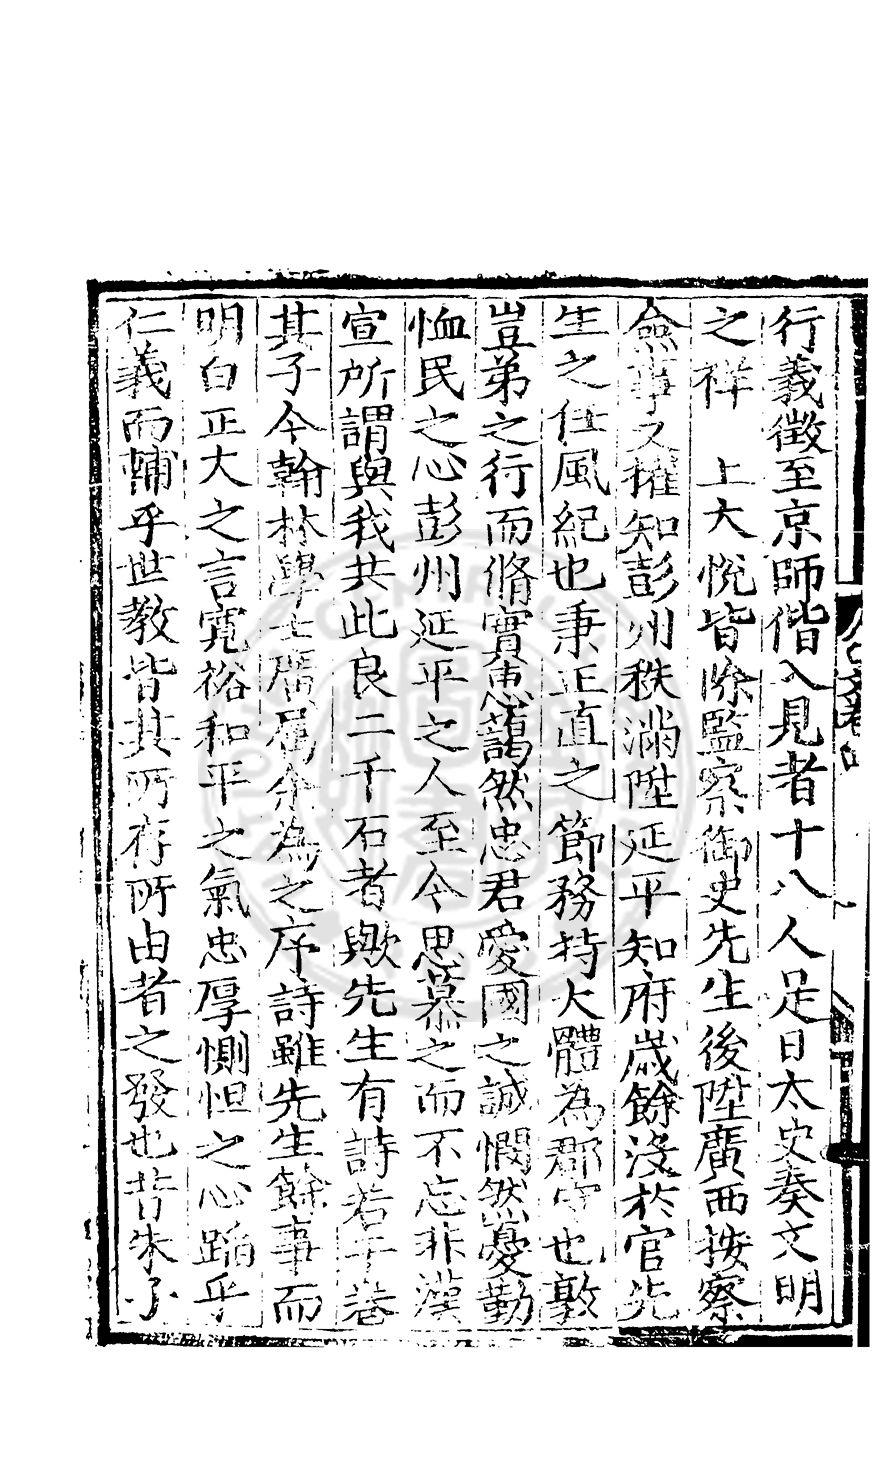 行義徵至京師偕入見者十八人是日太史奏文明
之祥　上大悅皆除監察御史先生後陞廣西按察
僉事又擢知彭州秩滿陞延平知府歲餘沒於官先
生之仕風紀也秉正直之節務持大體為郡守也敦
豈弟之行而脩實惠藹然忠君愛國之誠憫然憂勤
恤民之心彭州延平之人至今思慕之而不忘非漢
宣所謂與我共此良二千石者歟先生有詩若干卷
其子今翰林學士廣屬余為之序詩雖先生餘事而
明白正大之言寬裕和平之氣忠厚惻怛之心蹈乎
仁義而輔乎世教皆其所存所由者之發也昔朱子